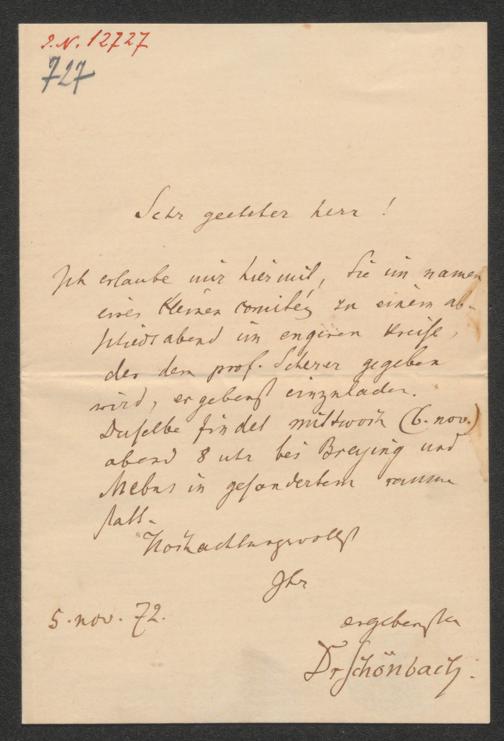 I.N. 12727
727
Sehr geehrter herr!
Ich erlaube mir hiermit, Sie im namen
eines kleinen comités zu einem ab-
schiedsabend im engeren kreise,
der dem prof. Scherer gegeben
wird, ergebenst einzuladen.
Daselbe findet mittwoch (6. nov.)
abend 8 uhr bei Breying und
Mebus in gesondertem raume
statt.
Hochachtungsvollst
Ihr
5. nov. 72.
ergebenster
Dr Schönbach.